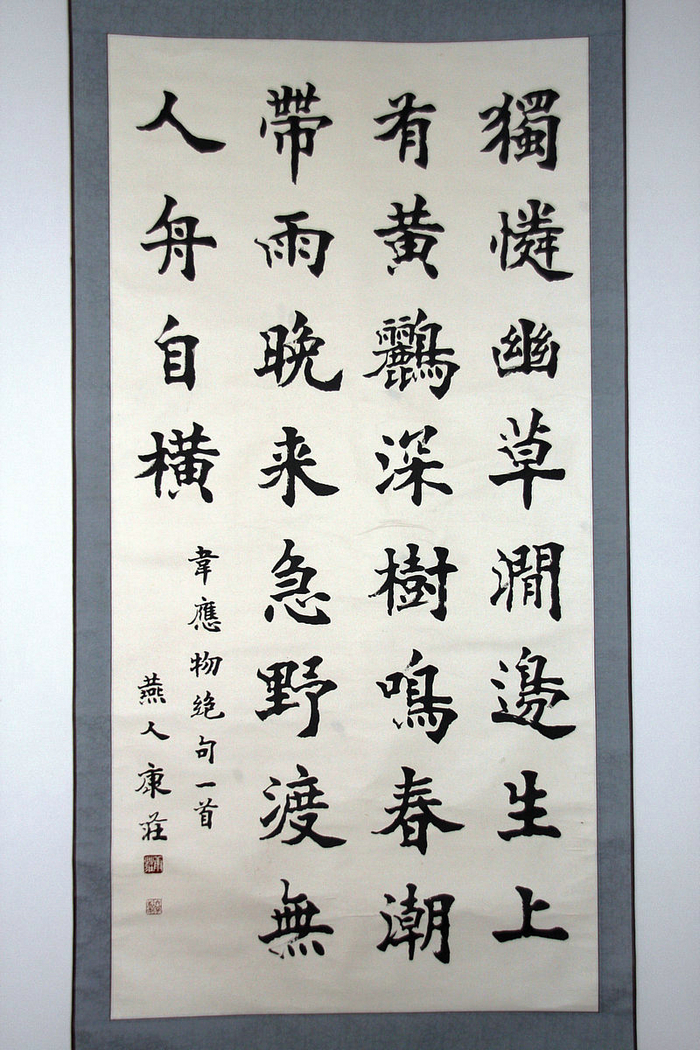 獨憐幽草澗邊生上
有黄鸝深樹鳴春潮
帶雨晚来急野渡無
人舟自横
韋應物绝句一首
燕人康莊